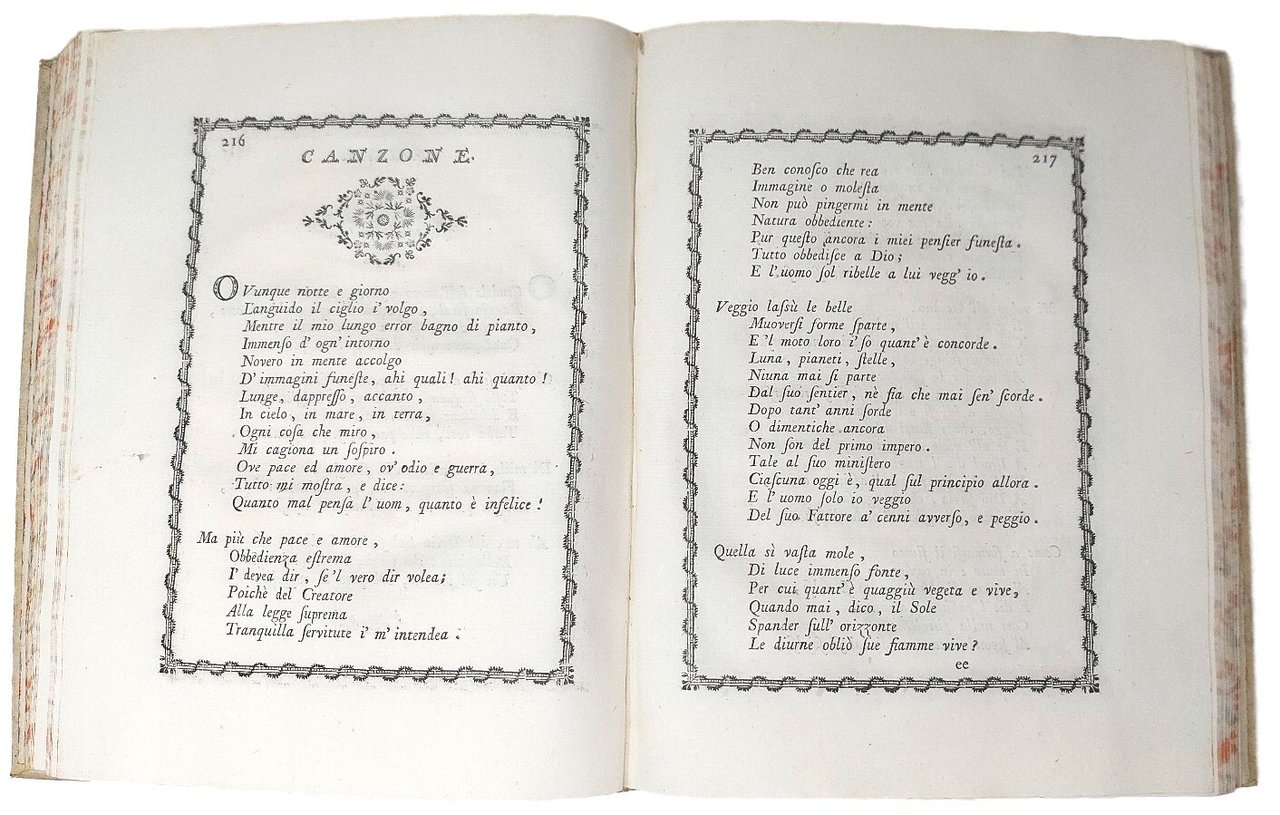 216
CANZONE.
OVunque notte e giorno
Languido il ciglio i' volgo,
Mentre il mio lungo error bagno di pianto,
Immenſo d' ogn' intorno
Novero in mente accolgo
D' immagini funeſte, ahi quali! ahi quanto!
Lunge, dappreſſo, accanto,
In cielo, in mare, in terra,
Ogni coſa che miro,
Mi cagiona un ſoſpiro.
Ove pace ed amore, ov' odio e guerra,
Tutto mi moſtra, e dice:
Quanto mal penſa l' uom, quanto è infelice!
Ma più che pace e amore,
Obbedienza eſtrema
I' devea dir, ſe 'l vero dir volea;
Poichè del Creatore
Alla legge ſuprema
Tranquilla ſervitute i' m' intendea.
217
Ben conoſco che rea
Immagine o moleſta
Non può pingermi in mente
Natura obbediente:
Pur queſto ancora i miei penſier funeſta.
Tutto obbediſce a Dio;
E l' uomo ſol ribelle a lui vegg' io.
Veggio laſsù le belle
Muoverſi forme ſparte,
E 'l moto loro i' ſo quant' è concorde.
Luna, pianeti, ſtelle,
Niuna mai ſi parte
Dal ſuo ſentier, nè fia che mai ſen' ſcorde.
Dopo tant' anni ſorde
O dimentiche ancora
Non ſon del primo impero.
Tale al ſuo miniſtero
Ciaſcuna oggi è, qual ſul principio allora.
E l' uomo ſolo io veggio
Del ſuo Fattore a' cenni avverſo, e peggio.
Quella sì vaſta mole,
Di luce immenſo fonte,
Per cui quant' è quaggiù vegeta e vive,
Quando mai, dico, il Sole
Spander ſull' orizzonte
Le diurne obliò ſue fiamme vive?
ee